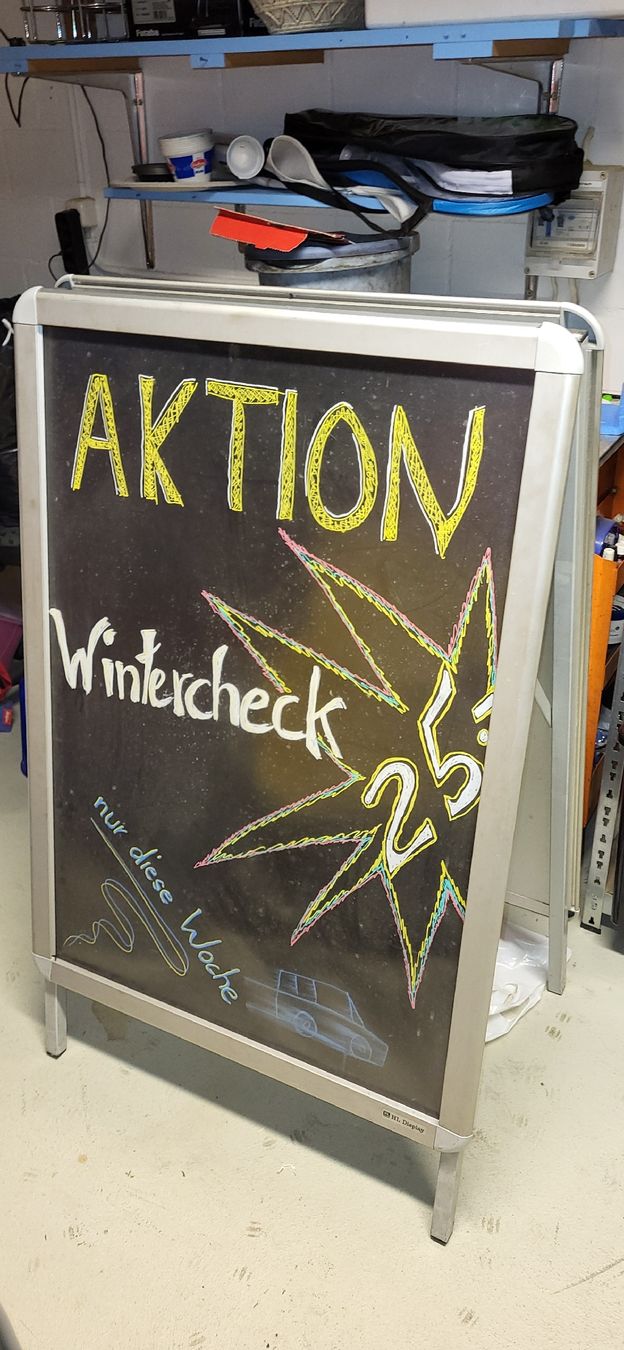 AKTION
Wintercheck
25.-
nur diese Woche
HL Display
Futaba